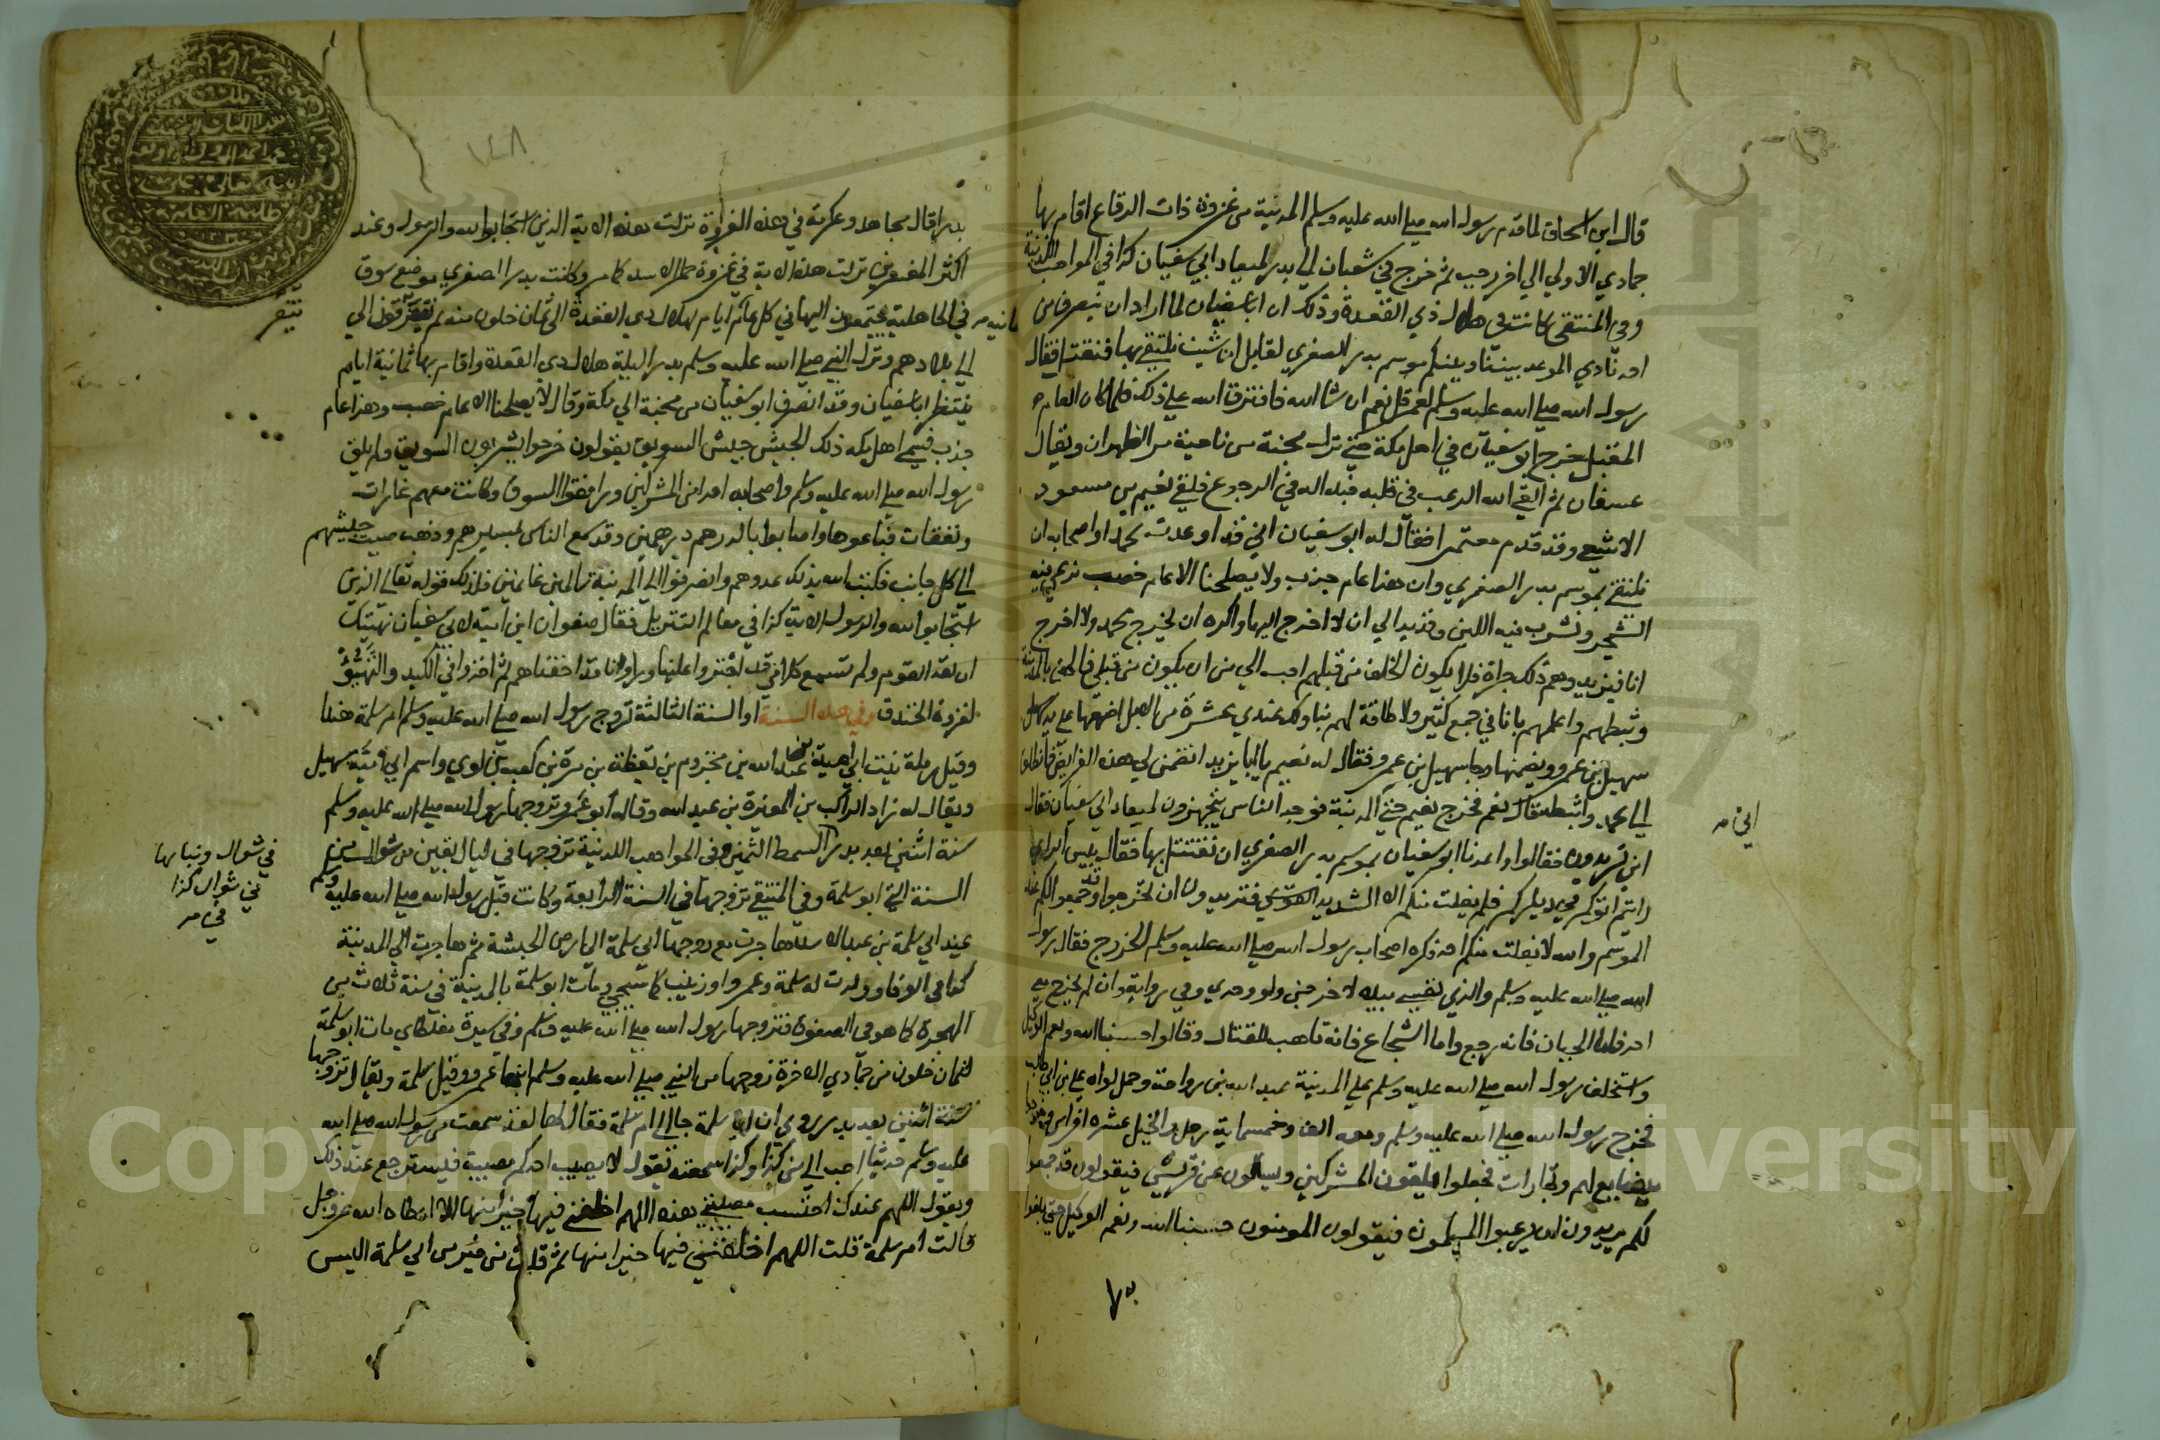 قال ابن اسحاق لما قدم رسول الله صلى الله عليه وسلم المدينة من غزوة ذات الرقاع اقام بها
جمادي الاولي الي اخر رجب ثم خرج في شعبان الي بدر لميعاد ابي سفيان كذا في المواهب اللدنية
وفي المنتقى كانت في هلال ذي القعدة وذلك ان ابا سفيان لما اراد ان ينصرف من
احد نادي الموعد بيننا وبينكم موسم بدر الصغري لقابل ان شيت نلتقي بها فنقتتل فقال
رسول الله صلى الله عليه وسلم لعمر قل نعم ان شا الله فافترقا على ذلك فلما كان العام
المقبل خرج ابو سفيان في اهل مكة حتى نزل مجنة من ناحية مر الظهران ويقال
عسفان ثم القي الله الرعب في قلبه فبدا له في الرجوع فلقي نعيم بن مسعود
الاشجعي وقد قدم معتمرا فقال له ابو سفيان اني قد اوعدت محمدا واصحابه ان
نلتقي بموسم بدر الصغري وان هذا عام جدب ولا يصلحنا الا عام خصب نرعي فيه
الشجر ونشرب فيه اللبن وقد بدا لي ان لا اخرج اليها واكره ان يخرج محمد ولا اخرج
انا فيزيدهم ذلك جراة فلا يكون الخلف من قبلهم احب الي من ان يكون من قبلي فالحق بالمدينة
وثبطهم واعلمهم بانا في جمع كثير ولا طاقة لهم بنا ولك عندي عشرة من الابل اضعها على يد سهيل
سهيل بن عمرو ويضمنها وجا سهيل بن عمرو فقال له نعيم يابا يزيد اتضمن لي هذه الفرايض فانطلق
الي محمد واثبطه قال نعم فخرج نعيم حتى المدينة فوجد الناس يتجهزون لميعاد ابي سفيان فقال
اين تريدون فقالوا واعدنا ابو سفيان بموسم بدر الصغري ان نقتتل بها فقال بيس الراي
رايتم اتوكم في دياركم فلم يفلت منكم الا الشديد افتريدون ان تخرجوا وقد جمعوا لكم عند
الموسم والله لا يفلت منكم احد فكره اصحاب رسول الله صلى الله عليه وسلم الخروج فقال رسول
الله صلى الله عليه وسلم والذي نفسي بيده لاخرجن ولو وحدي وفي رواية وان لم يخرج معي
احد فاما الجبان فانه رجع واما الشجاع فانه تاهب للقتال وقالوا حسبنا الله ونعم الوكيل
واستخلف رسول الله صلى الله عليه وسلم على المدينة عبد الله بن رواحة وحمل لواه على بن ابي طالب
فخرج رسول الله صلى الله عليه وسلم ومعه الف وخمسماية رجل والخيل عشرة افراس وخرجوا
ببضايع لهم وتجارات فجعلوا يلقون المشركين ويسالون عن قريش فيقولون قد جمعوا
لكم يريدون ان يرعبوا المسلمون فيقولون المومنون حسبنا الله ونعم الوكيل حتى بلغوا
ابي صح
بدرا قال مجاهد وعكرمة في هذه الغزاوة نزلت هذه الاية الذين استجابوا لله والرسول وعند
اكثر المفسرين نزلت هذه الاية في غزوة حمرا الاسد كما مر وكانت بدر الصغري موضع سوق
في الجاهلية يجتمعون اليها في كل عام ايام لهلال ذي القعدة الي ثمان خلون منه ثم تفرقون الي
الي بلادهم ونزل النبي صلى الله عليه وسلم بدر الليلة هلال ذي القعدة واقام بها ثمانية ايام
ينتظر ابا سفيان وقد انصرف ابو سفيان من مجنة الي مكة وقال لا يصلحنا الا عام خصب وهذا عام
جدب فسمي اهل مكه ذلك الجيش جيش السويق يقولون خرجوا يشربون السويق ولم يلق
رسول الله صلى الله عليه وسلم واصحابه احدا من المشركين ووافقوا السوق وكانت معهم تجارات
ونفقات فباعوها واصابوا بالدرهم درهمين وقد سمع الناس بمسيرهم وذهب صيت جيشهم
الي كل جانب فكبت الله بذلك عدوهم وانصرفوا الي المدينة سالمين غانمين فذلك قوله تعالي الذين
استجابوا لله والرسول الاية كذا في معالم التنزيل فقال صفوان ابن امية لابي سفيان نهيتك
ان تعد القوم ولم تسمع كلامي قد اجتروا علينا وراوا انا قد اخفناهم ثم اخذوا في الكيد والتهيؤ
لغزوة الخندق وفي هذه السنة او السنة الثالثة تزوج رسول الله صلى الله عليه وسلم ام سلمة هندا
وقيل رملة بنت ابي امية بن عبد الله بن مخزوم بن يقظة بن مرة بن كعب بن لوي واسم ابي امية سهيل
ويقال له زاد الراكب بن المغيرة بن عبد الله وقال ابو عمرو تزوجها رسول الله صلى الله عليه وسلم
سنة اثنتين بعد بدر السمط الثمين وفي المواهب اللدنية تزوجها في ليال بقين من شوال من
السنة التي ابو سلمة وفي المنتقي تزوجها في السنة الرابعة وكانت قبل رسول الله صلى الله عليه وسلم
عند ابي سلمة بن عبد الاسد هاجرت مع زوجها ابي سلمة الي ارض الحبشة ثم هاجرت الي المدينة
كذا في الوفا وولدت له سلمة وعمر وزينب كما سيجي ومات ابو سلمة بالمدينة في سنة ثلاث من
الهجرة كما هو في الصفوة فتزوجها رسول الله صلى الله عليه وسلم وفي سيرة مغلطاي مات ابو سلمة
لثمان خلون من جمادي الاخرة زوجها من النبي صلى الله عليه وسلم ابنها عمر وقيل سلمة ويقال تزوجها
سنة اثنتين بعد بدر روي ان ابا سلمة جا الي ام سلمة فقال لها لقد سمعت من رسول الله صلى الله
عليه وسلم حديثا احب الي من كذا وكذا سمعته يقول لا يصيب احدكم مصيبة فيسترجع عند ذلك
ويقول اللهم عندك احتسب مصيبتي هذه اللهم اخلفني فيها خيرا منها الا اعطاه الله عز وجل
قالت ام سلمة قلت اللهم اخلفني فيها خيرا منها ثم قلت من خير من ابي سلمة اليس
في شوال وبنا بها
في شوال كذا
في
Copyright © King Saud University